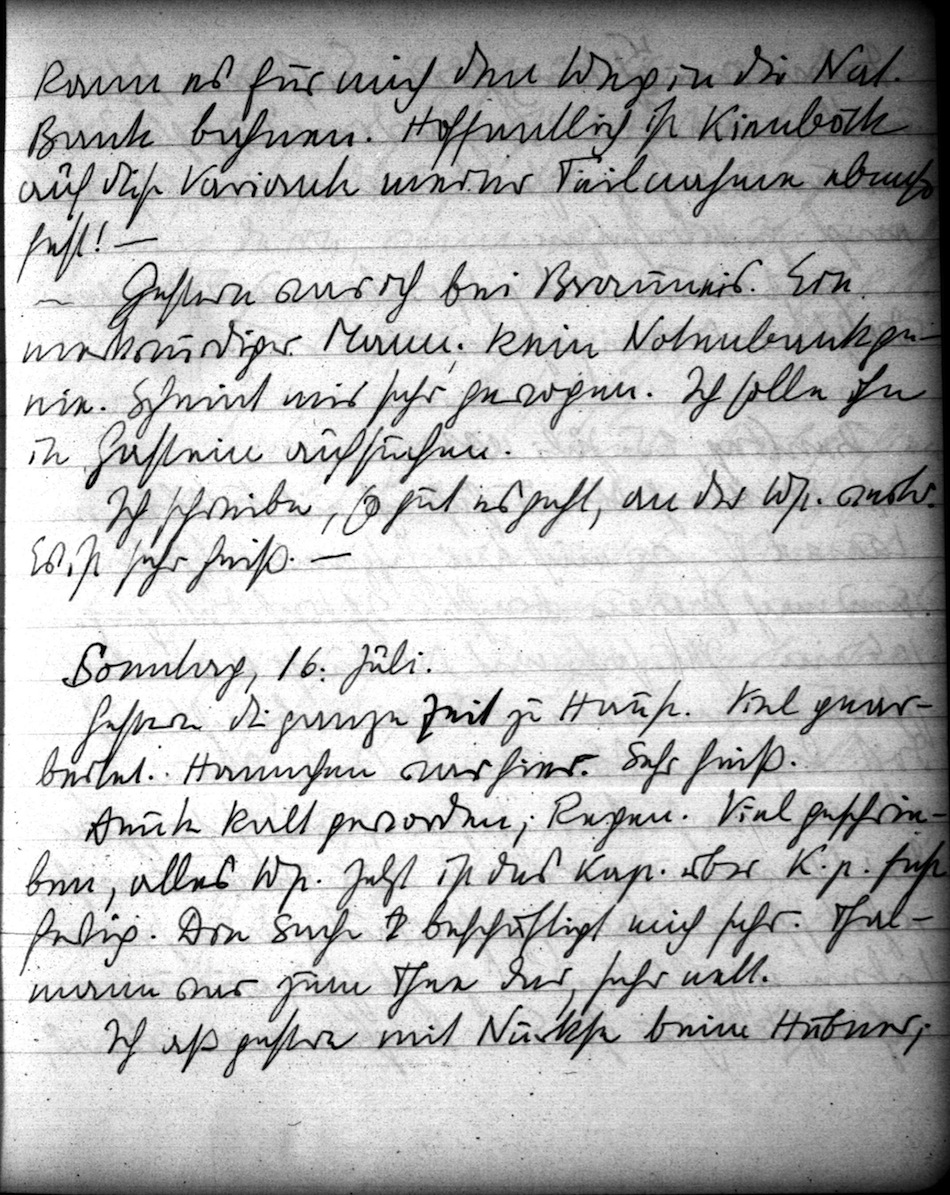 kann es für mich den Weg in die Nat.
Bank bahnen. Hoffentlich ist Kienböck
auf diese Variante meiner Teilnahme ebenso
fest! —
— Gestern war ich bei Brauneis. Ein
merkwürdiger Mann; kein Notenbankge-
nie. Scheint mir sehr gewogen. Ich solle ihn
in Gastein aufsuchen.
Ich schreibe, so gut es geht, an der Wp. weiter.
Es ist sehr heiß. —
Sonntag, 16. Juli.
Gestern die ganze Zeit zu Hause. Viel gear-
beitet. Hannchen war hier. Sehr heiß.
Heute kalt geworden; Regen. Viel geschrie-
ben, alles Wp. Jetzt ist das Kap. über K. p. fast
fertig. Die Sache beschäftigt mich sehr. Thal-
mann war zum Thee da, sehr nett.
Ich aß gestern mit Nurkse beim Hübner;